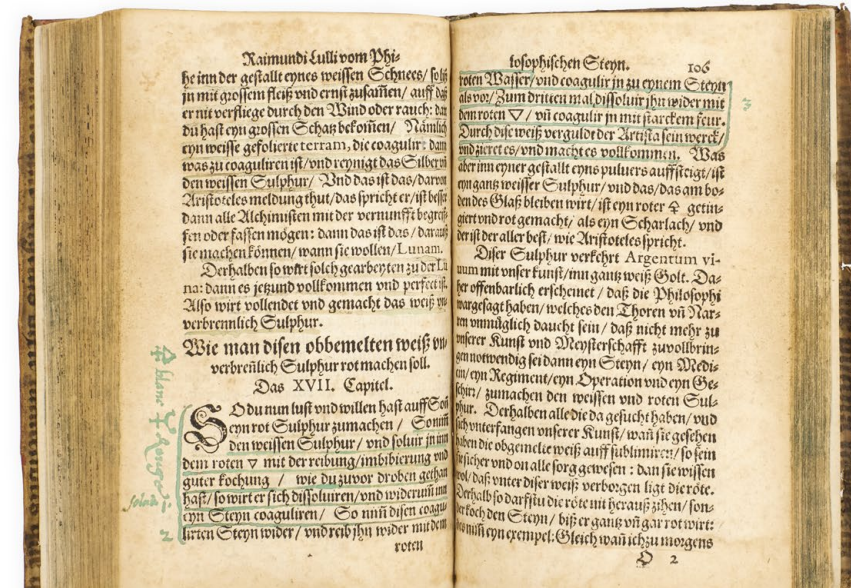 Raimundi Lulli vom Phi-
he inn der gestallt eynes weissen Schnees/ solt
jn mit grossem fleiß und ernst zusam̃en/ auff daß
er nit verfliege durch den Wind oder rauch: dañ
du hast eyn grossen Schatz bekom̃en/ Nämlich
eyn weisse gefolierte terram, die coagulirt dann
was zu coaguliren ist/ und reynigt das Silber in
den weissen Sulphur/ Und das ist das/ darvon
Aristoteles meldung thut/ das spricht er/ ist besser
dann alle Alchimisten mit der vernunfft begreif-
fen oder fassen mögen: dann das ist das/ darauß
sie machen können/ wann sie wollen/ Lunam.
Derhalben so wirt solch gearbeyten zu der Lu
na: dann es jetzund vollkommen und perfect ist.
Also wirt vollendet und gemacht das weiß un-
verbrennlich Sulphur.
Wie man disen obbemelten weiß un-
verbreñlich Sulphur rot machen soll.
Das XVII. Capitel.
SO du nun lust und willen hast auff Sol
eyn rot Sulphur zumachen/ So nim̃
den weissen Sulphur/ und soluir jn inn
dem roten ▽ mit der reibung/ imbibierung und
guter kochung/ wie du zuvor droben gethan
hast/ so wirt er sich dissoluiren/ und widerumm inn
eyn Steyn coaguliren/ So nim̃ disen coagu-
lirten Steyn wider/ und reib jhn wider mit dem
roten
losophischen Steyn. 106
roten Wasser/ und coagulir jn zu eynem Steyn
als vor/ Zum dritten mal dissoluir jhn wider mit
dem roten ▽/ uñ coagulir jn mit starckem feur.
Durch dise weiß verguldt der Artista sein werck/
und zieret es/ und macht es vollkommen. Was
aber inn eyner gestallt eyns pulvers auffsteigt/ ist
eyn gantz weisser Sulphur/ und das/ das am bo-
den des Glaß bleiben wirt/ ist eyn roter 🜍 getin-
giert und rot gemacht/ als eyn Scharlach/ und
der ist der aller best/ wie Aristoteles spricht.
Diser Sulphur verkehrt Argentum vi-
uum mit unser kunst/ inn gantz weiß Golt. Da-
her offenbarlich erscheinet/ daß die Philosophi
wargesagt haben/ welches den Thoren uñ Nar-
ren unmüglich daucht sein/ daß nicht mehr zu
unserer Kunst und Meysterschafft zuvollbrin-
gen notwendig sei dann eyn Steyn/ eyn Medi-
cin/ eyn Regiment/ eyn Operation und eyn Ge-
schirr/ zumachen den weissen und roten Sul-
phur. Derhalben alle die da gesucht haben/ und
sich unterfangen unserer Kunst/ wañ sie gesehen
haben die obgemelte weiß auff sublimirn/ so sein
sie sicher und on alle sorg gewesen: dan sie wissen
wol/ daß unter diser weiß verborgen ligt die röte.
Derhalb so darfstu die röte nit herauß zihen/ son-
der koch den Steyn/ biß er gantz uñ gar rot wirt:
des nim̃ eyn exempel: Gleich wañ ich zu morgens
2